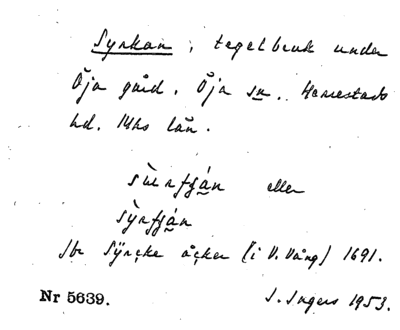 Syrkan, tegelbruk under
Öja gård. Öja sn. Herrestads
hd. Mhs län.
sùrfgán eller
sỳrfgán
Jbr Syrcke åcker (i V. Vång) 1691.
Nr 5639. I. Ingers 1953.